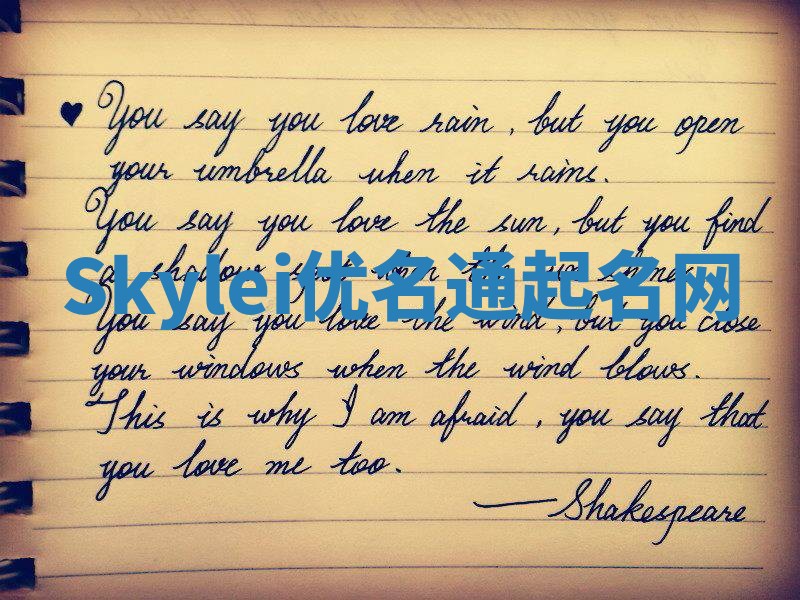 ♥ You say you love rain, but you open
your umbrella when it rains.
You say you love the sun, but you find
a shadow spot when the sun shines.
Skylei优名通起名网
You say you love the wind, but you close
your windows when the wind blows.
This is why I am afraid, you say that
you love me too.
— Shakespeare